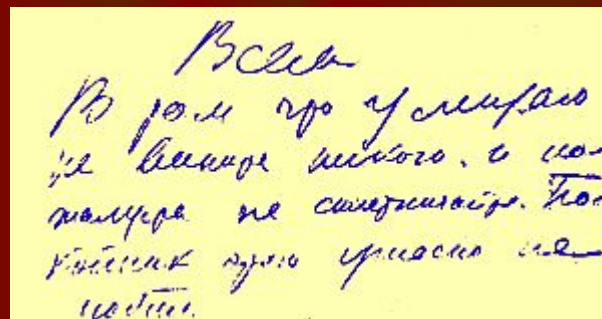 Всем
В том что умираю
не вините никого, и по
жалуйста не сплетничайте. По
койник этого ужасно не
любил.